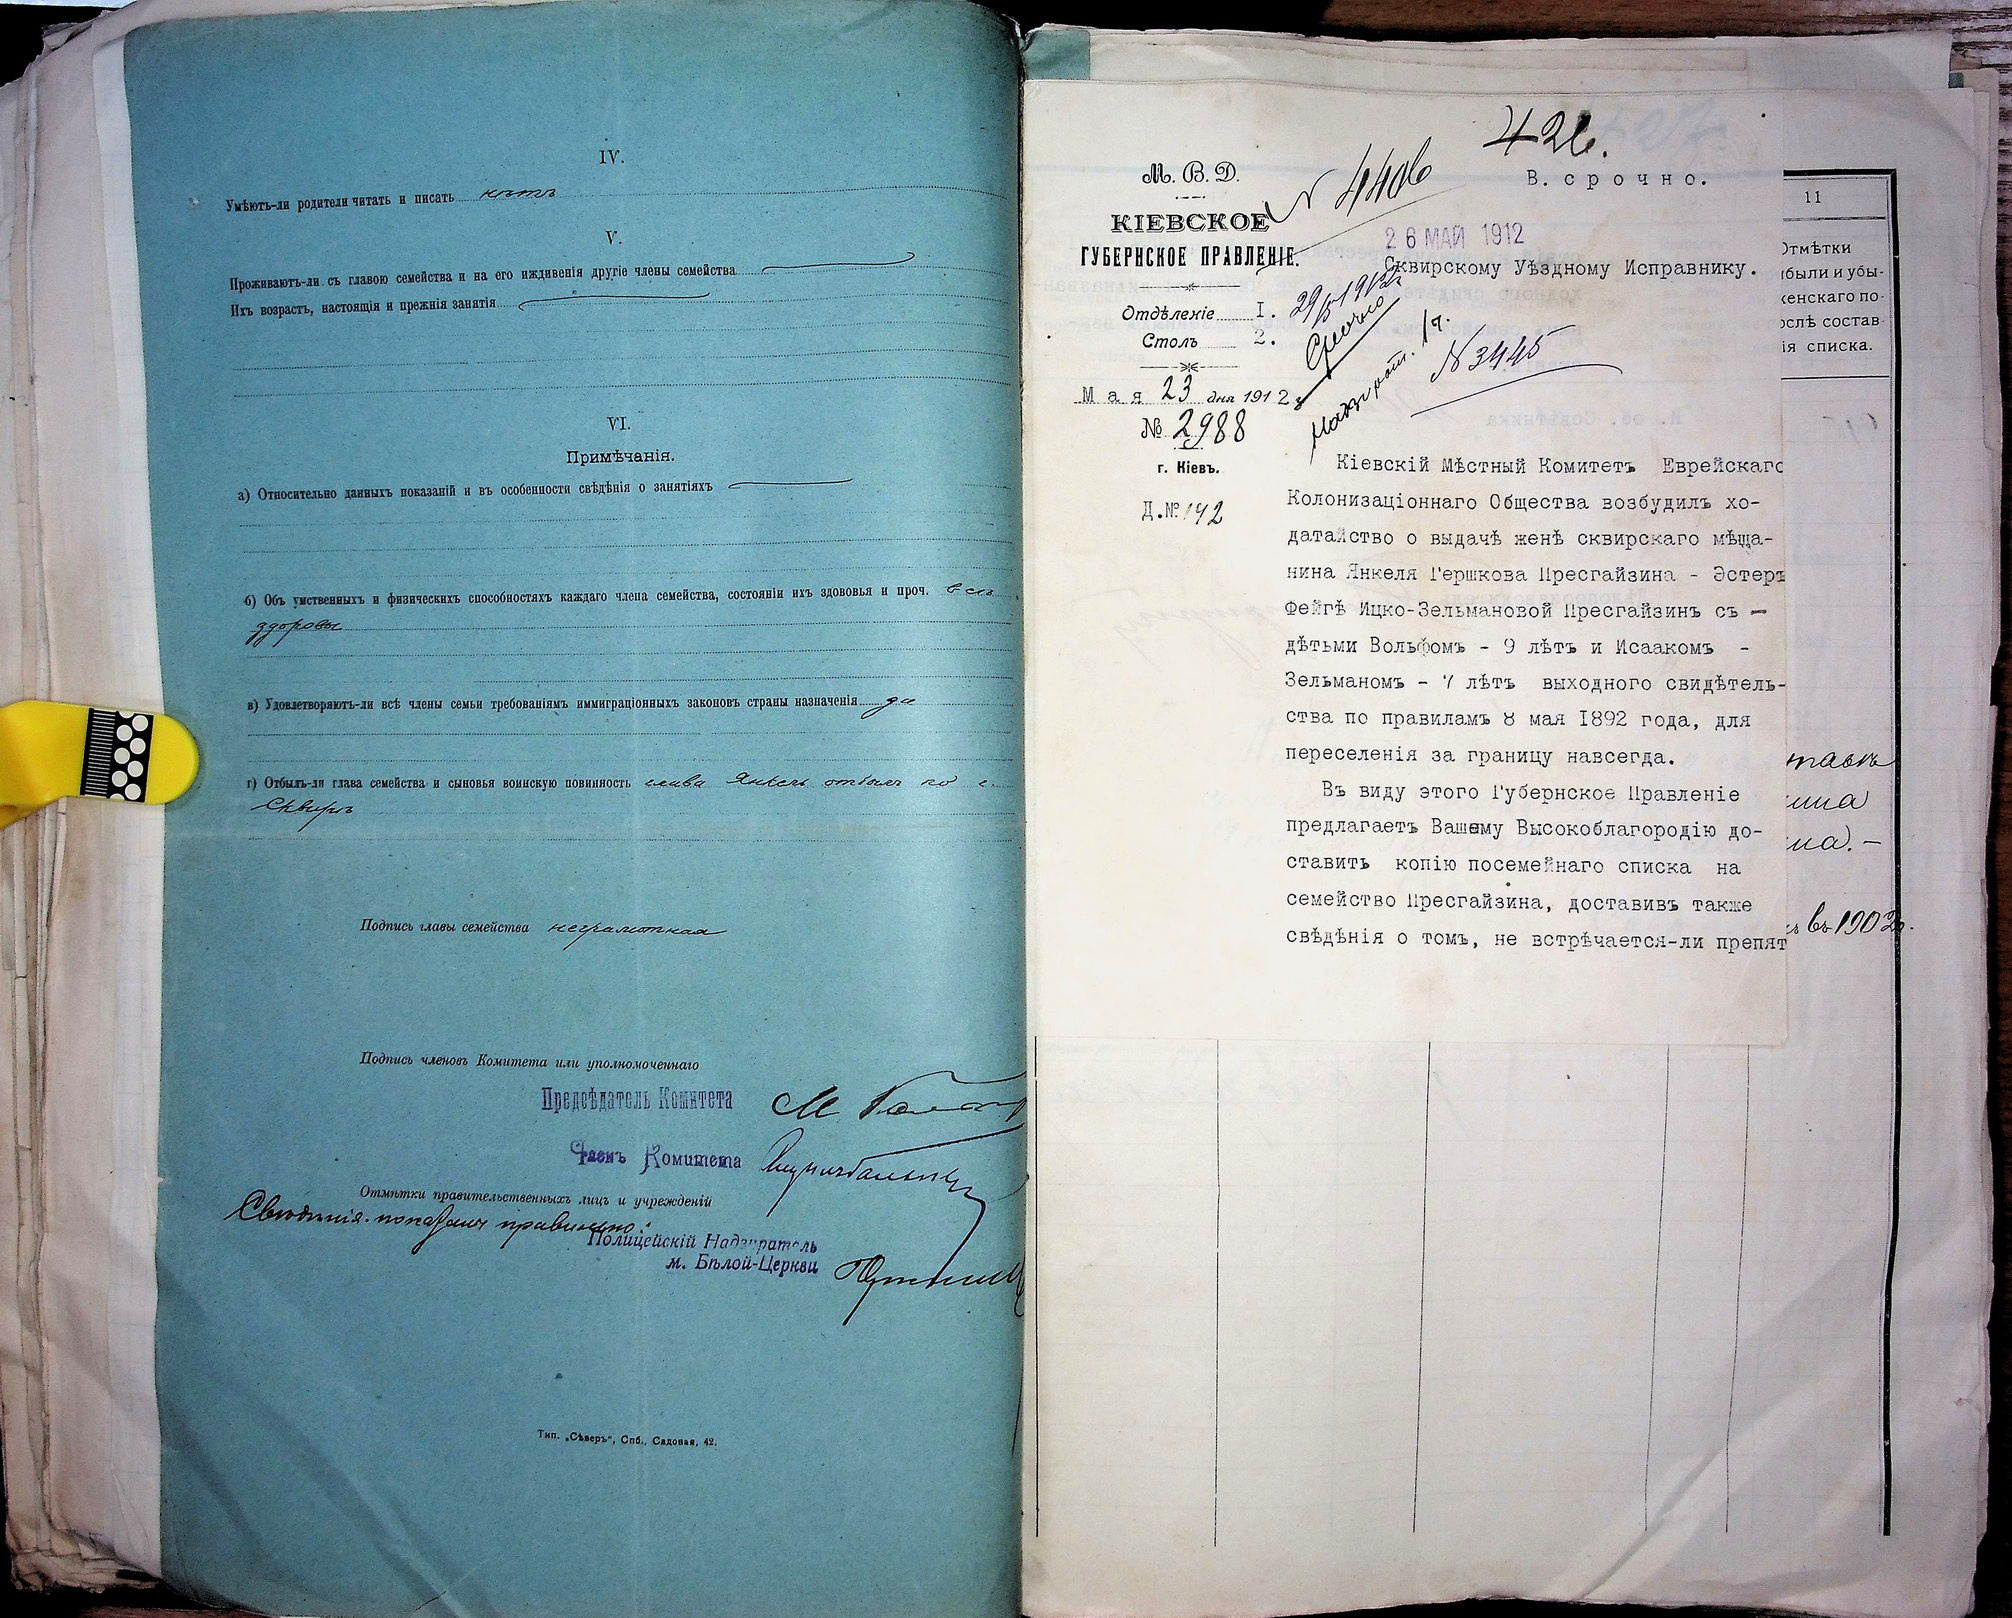 IV.
Умѣютъ-ли родители читать и писать нѣтъ
V.
Проживаютъ-ли съ главою семейства и на его иждивенія другіе члены семейства
Ихъ возрастъ, настоящія и прежнія занятія
VI.
Примѣчанія.
а) Относительно данныхъ показаній и въ особенности свѣдѣнія о занятіяхъ
б) Объ умственныхъ и физическихъ способностяхъ каждаго члена семейства, состояніи ихъ здововья и проч. всѣ
здоровы
в) Удовлетворяютъ-ли всѣ члены семьи требованіямъ иммиграціонныхъ законовъ страны назначенія да
г) Отбылъ-ли глава семейства и сыновья воинскую повинность глава Янкель отбылъ по г.
Сквирѣ
Подпись главы семейства неграмотная
Подпись членовъ Комитета или уполномоченнаго
Предсѣдатель Комитета М.
Членъ Комитета
Отмѣтки правительственныхъ лицъ и учрежденій
Свѣдѣнія показаны правильно.
Полицейскій Надзиратель
м. Бѣлой-Церкви
Тип. „Сѣверъ", Спб., Садовая, 42.
426.
В. срочно.
М. В. Д.
КІЕВСКОЕ
ГУБЕРНСКОЕ ПРАВЛЕНІЕ.
N 4406
26 МАЙ 1912
Сквирскому Уѣздному Исправнику.
Отдѣленіе I.
Столъ 2.
29/V 1912 г.
Срочно
1 ч.
N 3445
Мая 23 дня 1912 г.
№ 2988
г. Кіевъ.
Д.№ 142
Кіевскій Мѣстный Комитетъ Еврейскаго
Колонизаціоннаго Общества возбудилъ хо-
датайство о выдачѣ женѣ сквирскаго мѣща-
нина Янкеля Гершкова Пресгайзина - Эстеръ
Фейгѣ Ицко-Зельмановой Пресгайзинъ съ -
дѣтьми Вольфомъ - 9 лѣтъ и Исаакомъ -
Зельманомъ - 7 лѣтъ выходного свидѣтель-
ства по правиламъ 8 мая 1892 года, для
переселенія за границу навсегда.
Въ виду этого Губернское Правленіе
предлагаетъ Вашему Высокоблагородію до-
ставить копію посемейнаго списка на
семейство Пресгайзина, доставивъ также
свѣдѣнія о томъ, не встрѣчается-ли препят
11
Отмѣтки
ибыли и убы-
женскаго по-
ослѣ состав-
ія списка.
въ 1902 г.